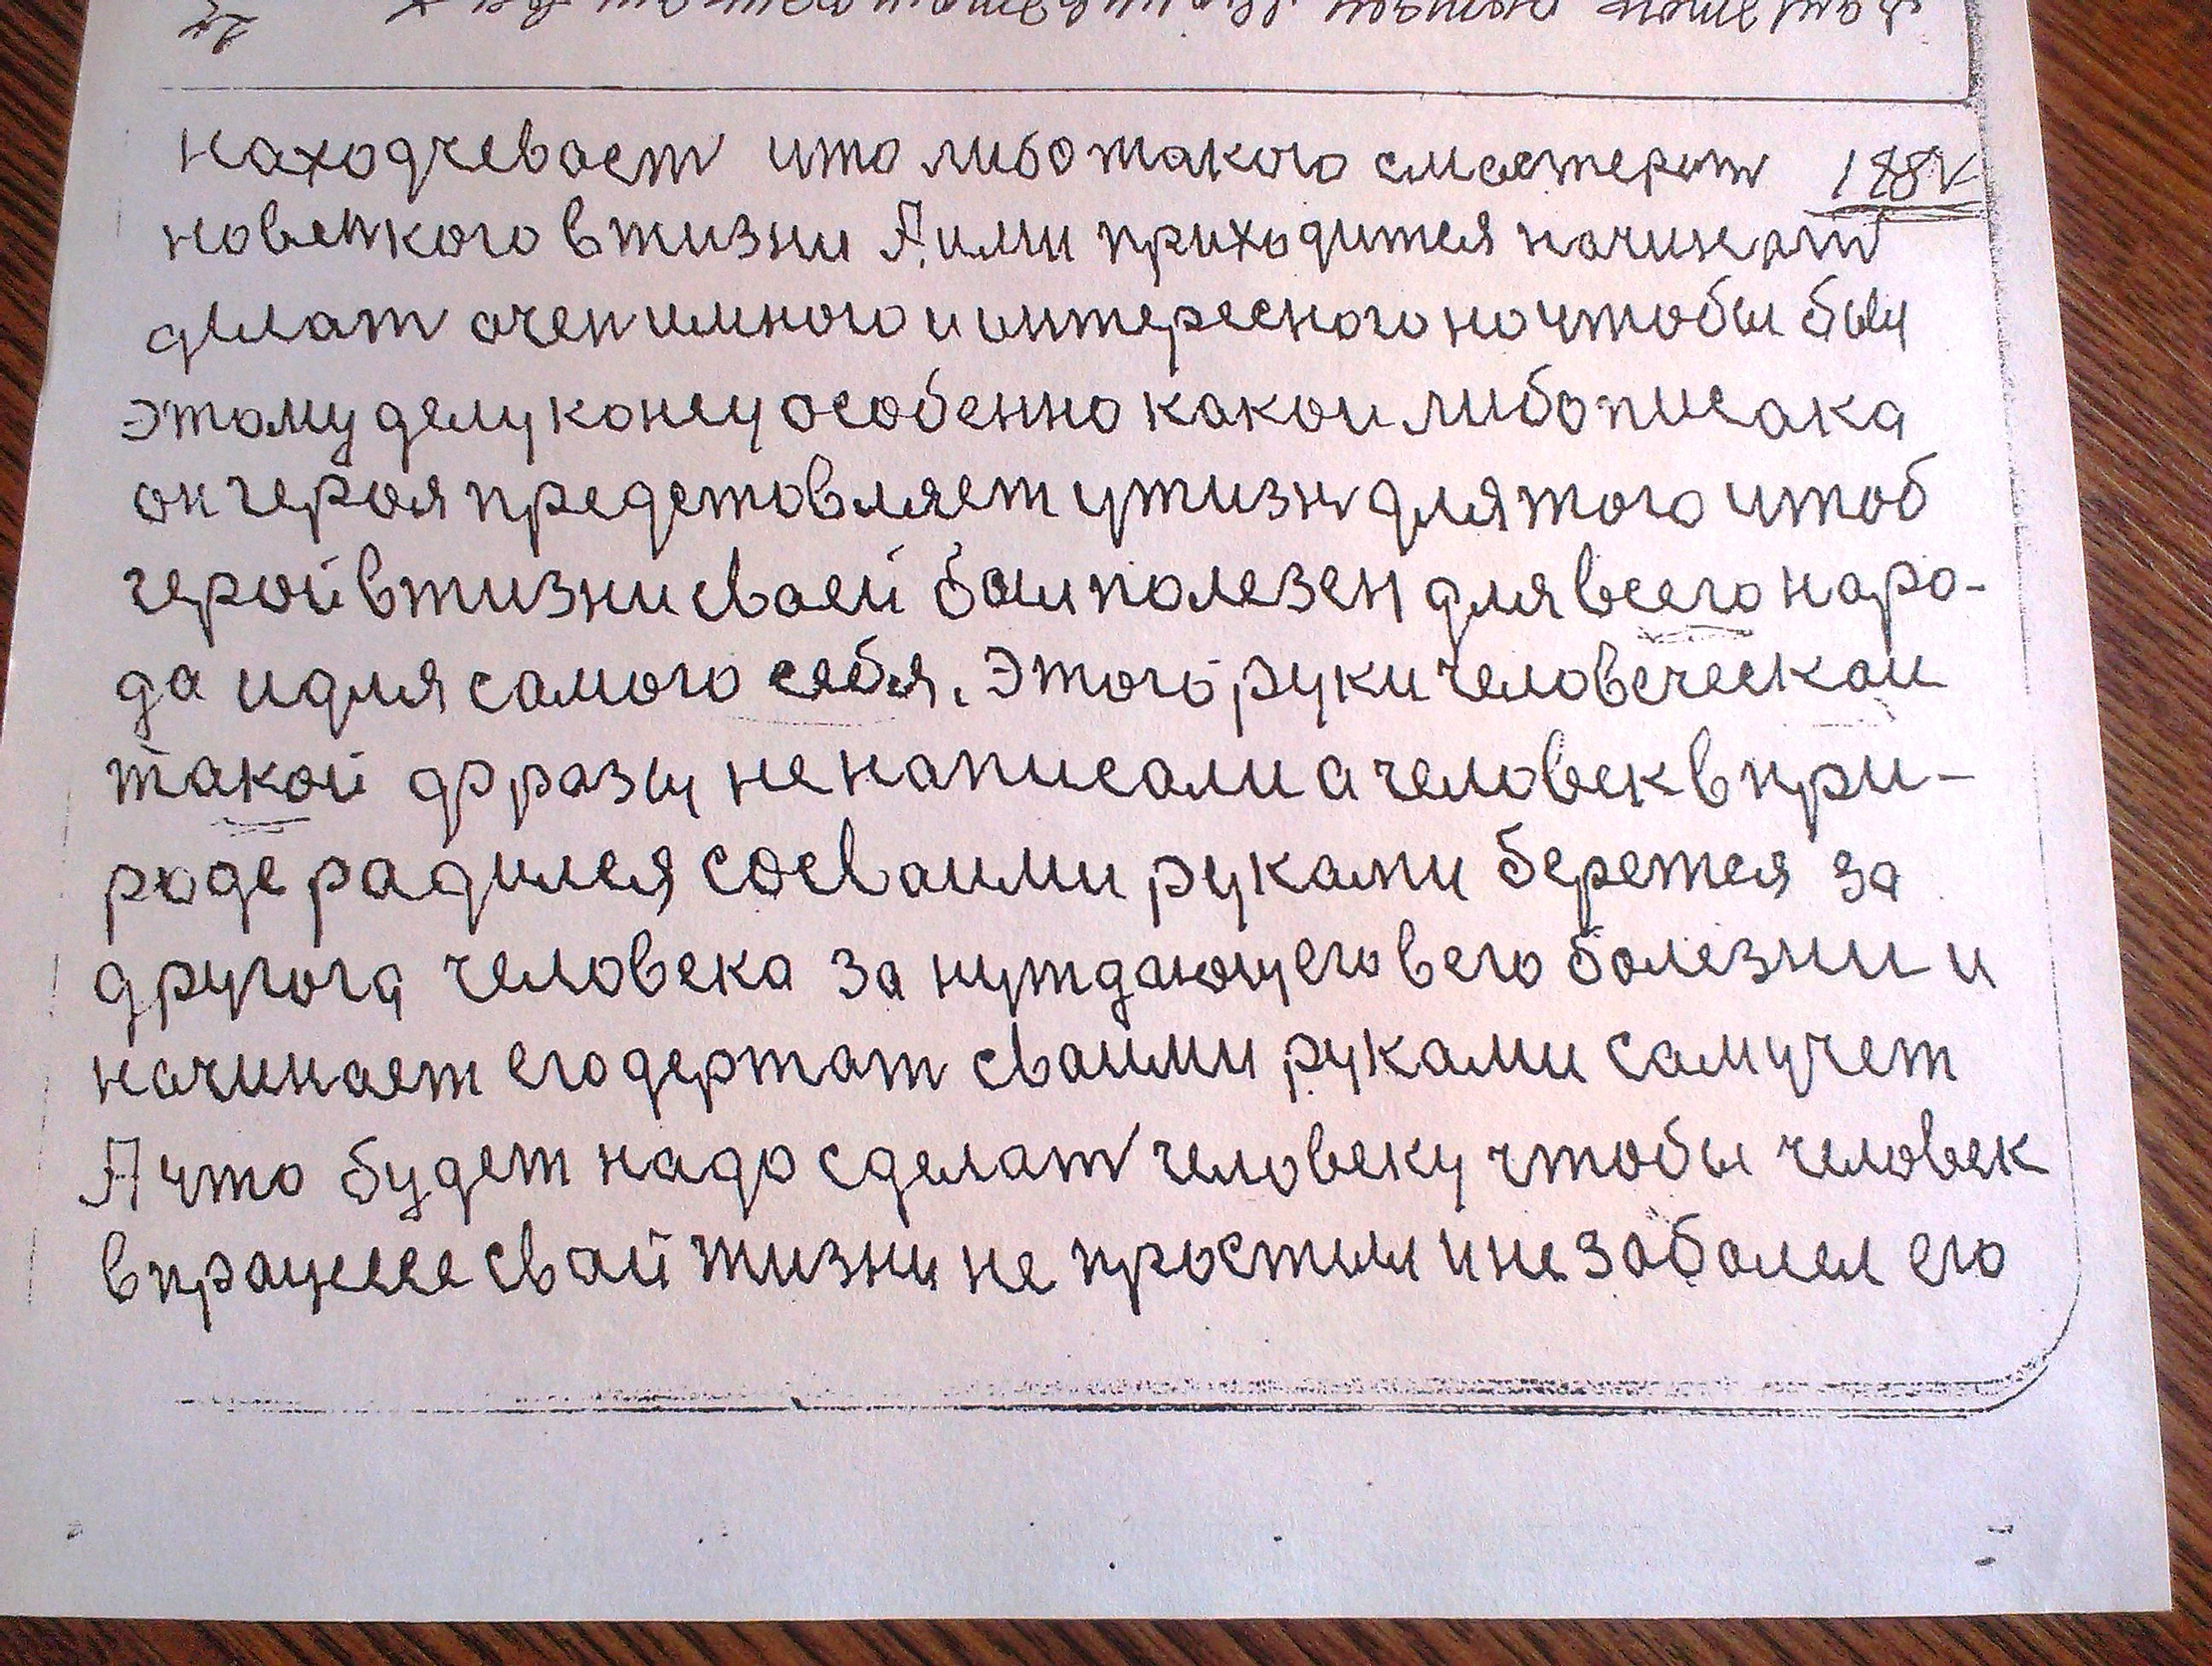 находчевает што либо такого смастерит
новенкого в жизни А ими приходится начинат
делат очен имного и интересного но чтобы был
этому делу конец особенно какои либо писака
он героя предстовляет у жизн для того штоб
герой в жизни сваей был полезен для всего наро-
да и для самого себя. Этого руки человеческаи
такой фразы не написали а человек в при-
роде радился со сваими руками берется за
другога человека за нуждающего в его болезни и
начинает его держат сваими руками сам учет
А что будет надо сделат человеку чтобы человек
в працессе свай жизни не простыл и не заболел его